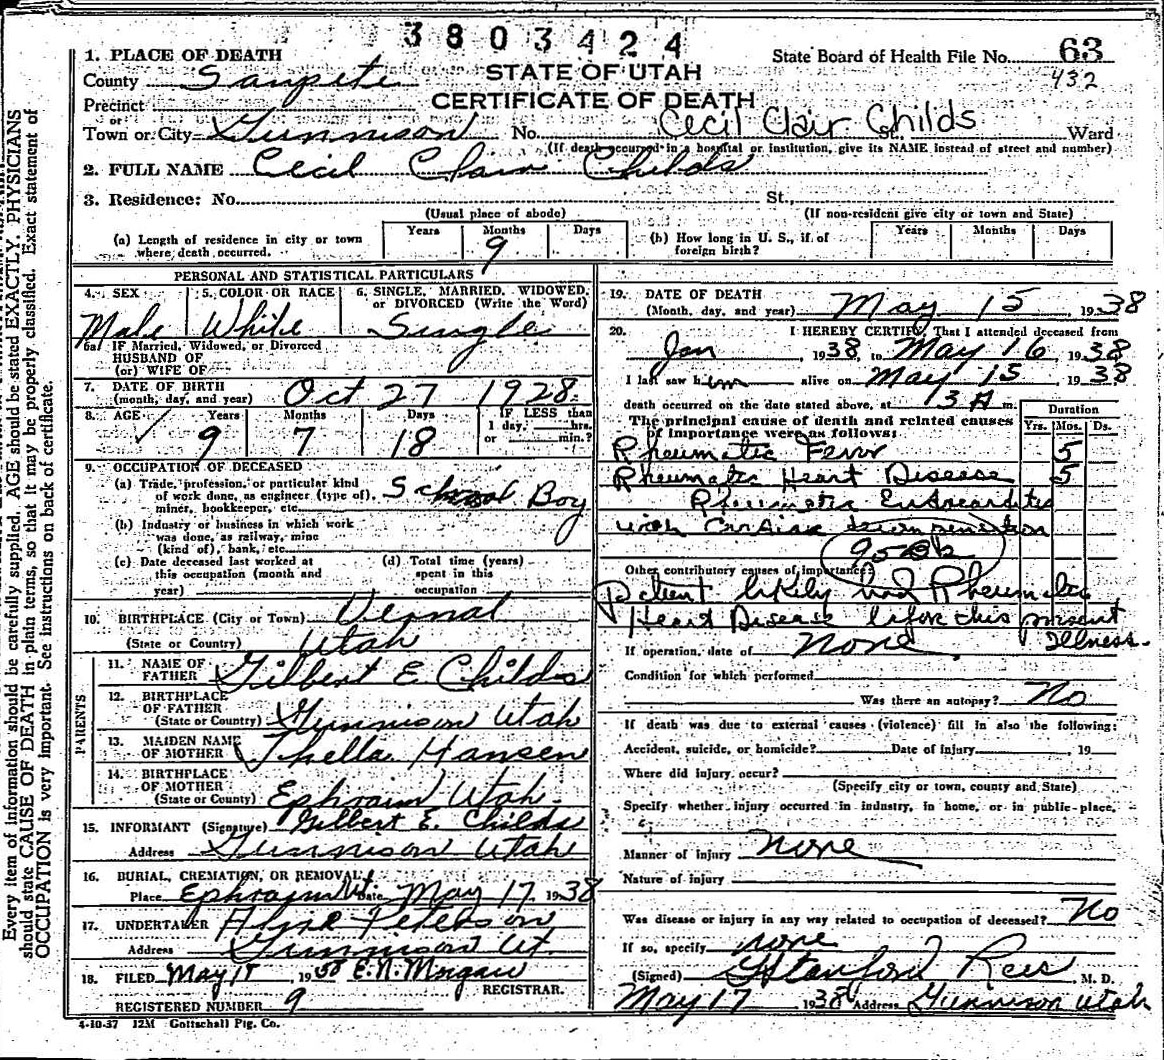 3803424
1. PLACE OF DEATH
State Board of Health File No. 63
432
County Sanpete
STATE OF UTAH
CERTIFICATE OF DEATH
Precinct
or
Town or City Gunnison No. Cecil Clair Childs St. Ward
(If death occurred in a hospital or institution, give its NAME instead of street and number)
2. FULL NAME Cecil Clair Childs
3. Residence: No. St.,
(Usual place of abode) (If non-resident give city or town and State)
(a) Length of residence in city or town where death occurred. Years Months 9 Days
(b) How long in U. S., if of foreign birth? Years Months Days
PERSONAL AND STATISTICAL PARTICULARS
4. SEX Male
5. COLOR OR RACE White
6. SINGLE, MARRIED, WIDOWED, or DIVORCED (Write the Word) Single
6a. IF Married, Widowed, or Divorced
HUSBAND OF
(or) WIFE OF
7. DATE OF BIRTH (month, day, and year) Oct 27 1928
8. AGE Years 9 Months 7 Days 18 IF LESS than 1 day, hrs. or min.?
9. OCCUPATION OF DECEASED
(a) Trade, profession, or particular kind of work done, as engineer (type of), miner, bookkeeper, etc. School Boy
(b) Industry or business in which work was done, as railway, mine (kind of), bank, etc.
(c) Date deceased last worked at this occupation (month and year)
(d) Total time (years) spent in this occupation
10. BIRTHPLACE (City or Town) Vernal
(State or Country) Utah
PARENTS
11. NAME OF FATHER Gilbert E. Childs
12. BIRTHPLACE OF FATHER (State or Country) Gunnison Utah
13. MAIDEN NAME OF MOTHER Thella Hansen
14. BIRTHPLACE OF MOTHER (State or County) Ephraim Utah
15. INFORMANT (Signature) Gilbert E. Childs
Address Gunnison Utah
16. BURIAL, CREMATION, OR REMOVAL
Place Ephraim Ut Date May 17 1938
17. UNDERTAKER Peterson
Address Gunnison Ut.
18. FILED May 1938 E. N. Morgan
REGISTRAR.
REGISTERED NUMBER 9
4-10-37 12M Gottschall Ptg. Co.
19. DATE OF DEATH (Month, day, and year) May 15 1938
20. I HEREBY CERTIFY, That I attended deceased from
Jan, 1938, to May 16, 1938
I last saw him alive on May 15, 1938
death occurred on the date stated above, at 3 A m.
The principal cause of death and related causes of importance were as follows:
Duration
Yrs. Mos. Ds.
Rheumatic Fever 5
Rheumatic Heart Disease 5
Rheumatic Endocarditis
with Cardiac decompensation
Other contributory causes of importance:
Patient likely had Rheumatic
Heart Disease before this present
Illness.
If operation, date of None
Condition for which performed
Was there an autopsy? No
If death was due to external causes (violence) fill in also the following:
Accident, suicide, or homicide? Date of injury, 19
Where did injury occur?
(Specify city or town, county and State)
Specify whether injury occurred in industry, in home, or in public place,
Manner of injury None
Nature of injury
Was disease or injury in any way related to occupation of deceased? No
If so, specify none
(Signed) G Stanford Rees M. D.
May 17 1938 Address Gunnison Utah
Every item of information should be carefully supplied. AGE should be stated EXACTLY. PHYSICIANS
should state CAUSE OF DEATH in plain terms, so that it may be properly classified. Exact statement of
OCCUPATION is very important. See instructions on back of certificate.